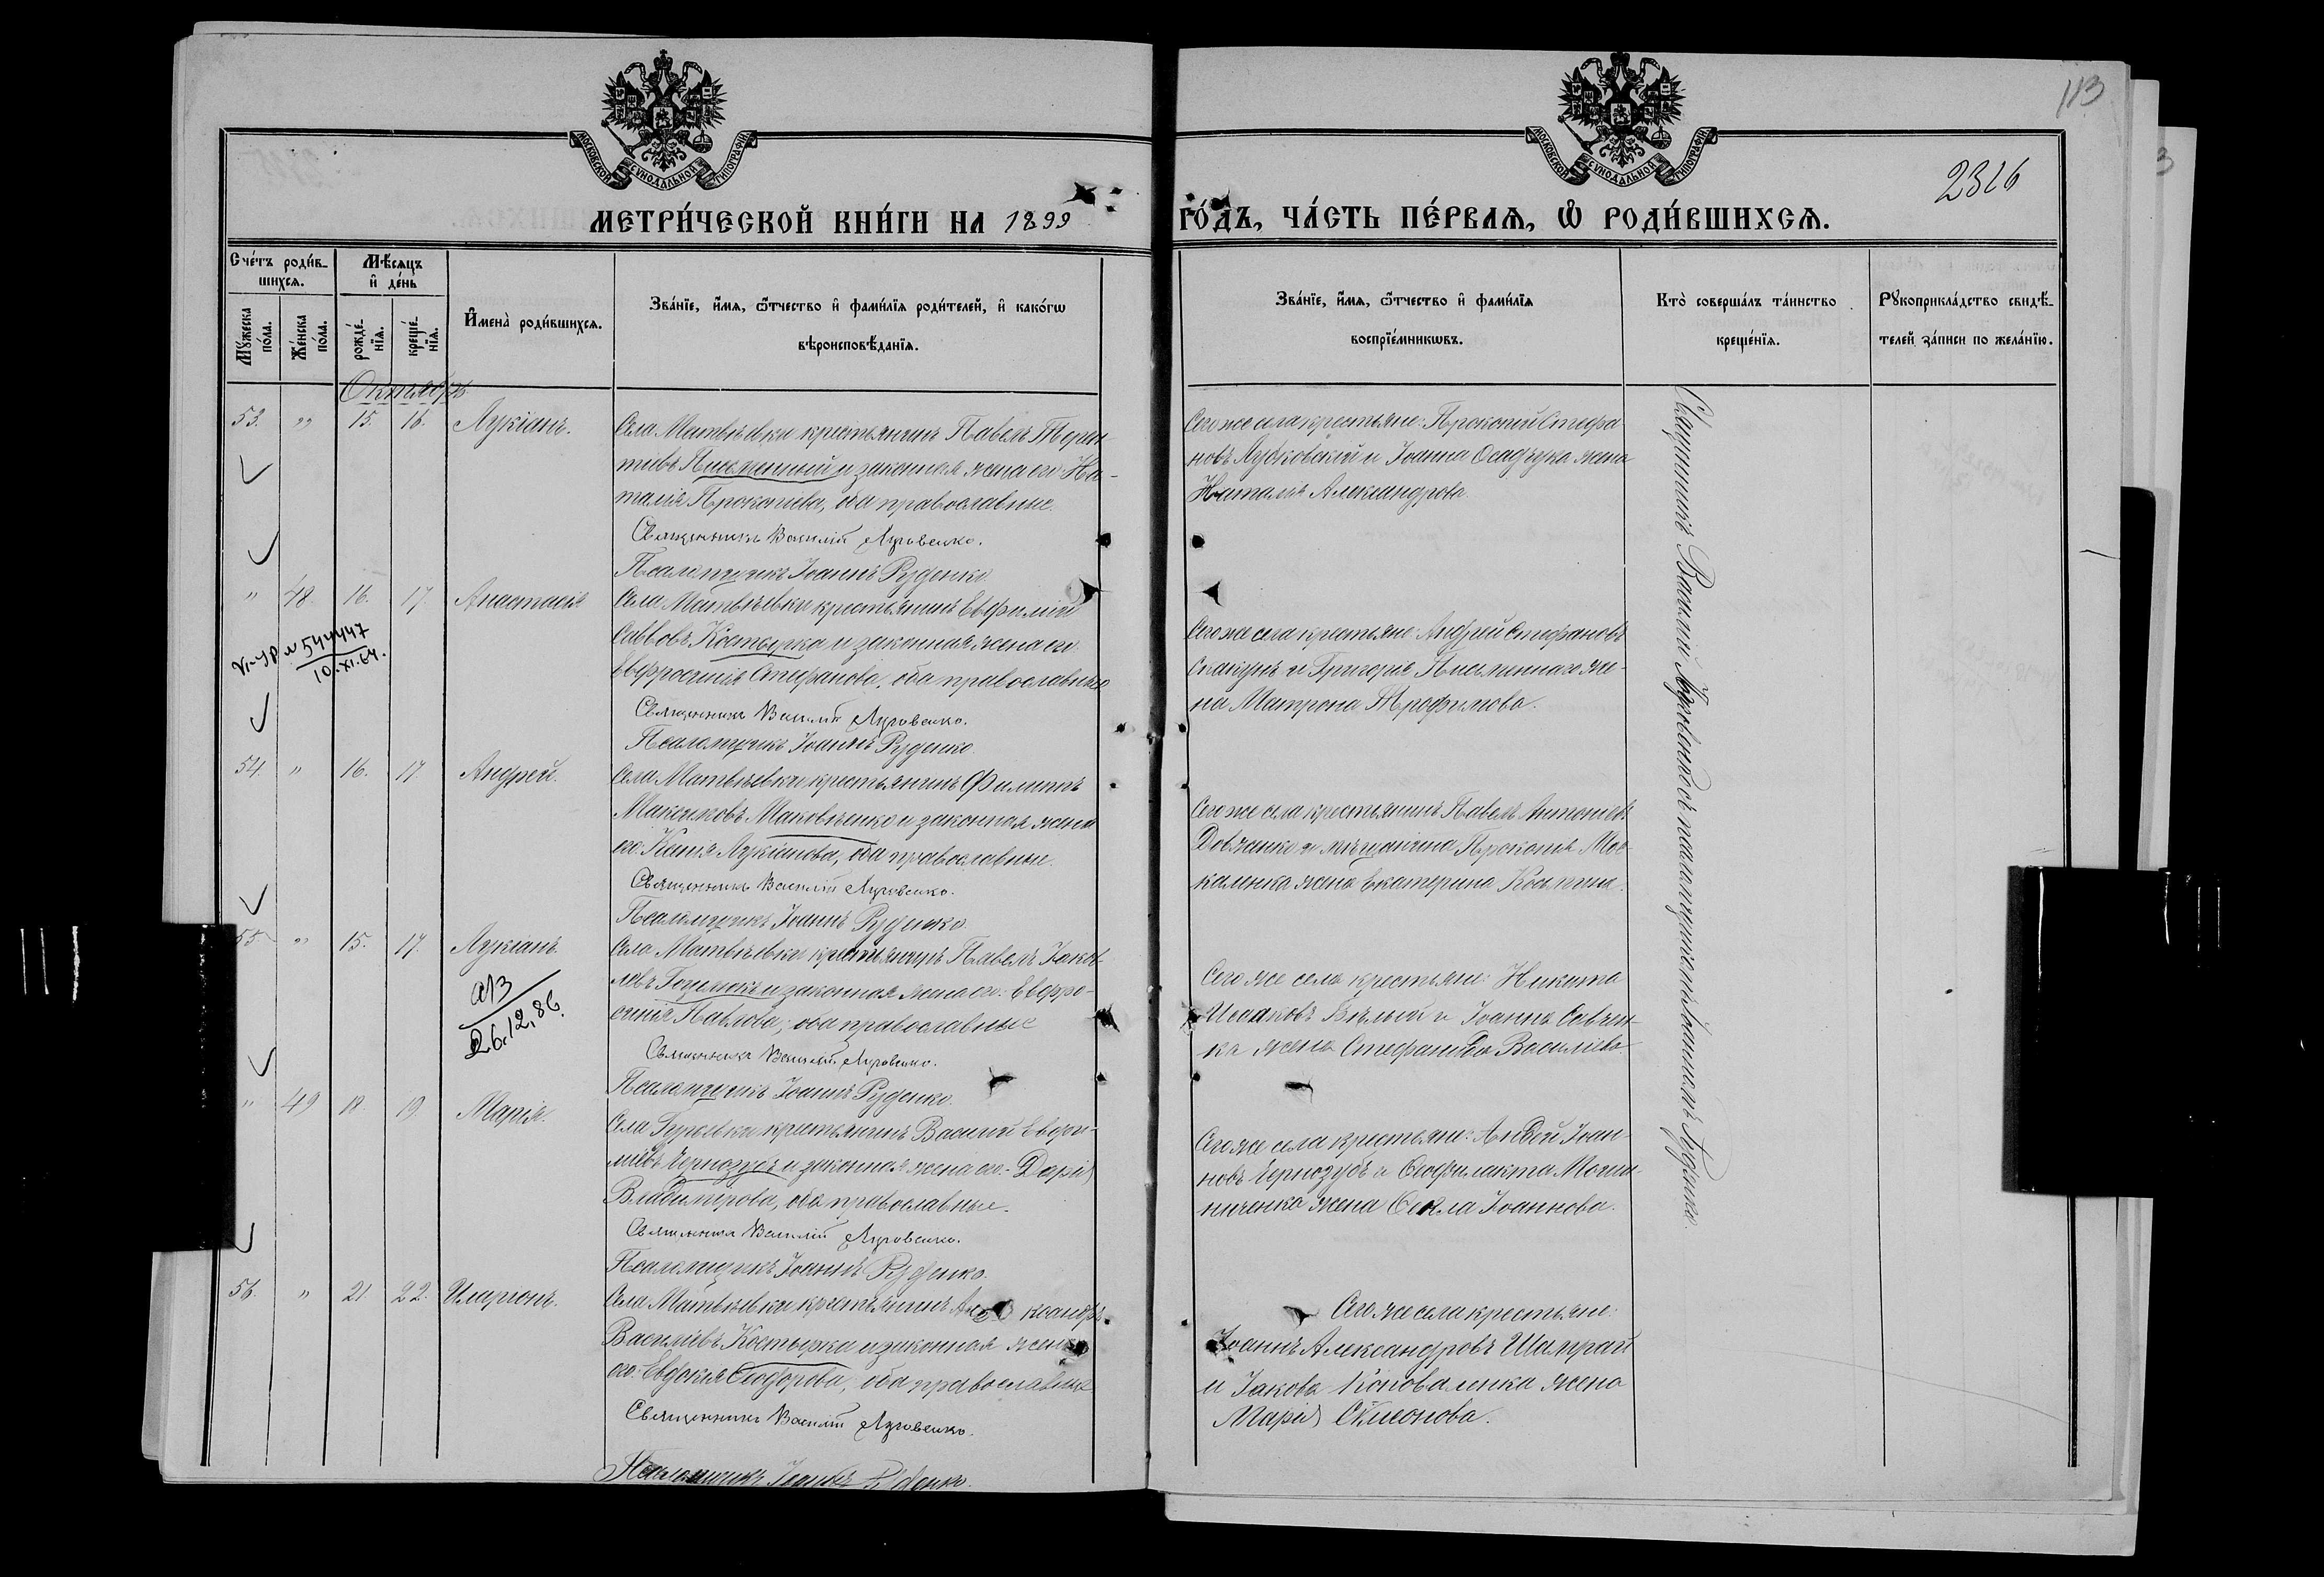 113
2316
МОСКОВСКОЙ СѴНОДАЛЬНОЙ ТИПОГРАФІИ
МОСКОВСКОЙ СѴНОДАЛЬНОЙ ТИПОГРАФІИ
МЕТРИ́ЧЕСКОЙ КНИ́ГИ НА 1899 ГО́ДЪ, ЧА́СТЬ ПЕ́РВАѦ, Ѡ҆ РОДИ́ВШИХСѦ.
Сче́тъ роди́в-
шихсѧ.
Мѣ́сѧцъ
и҆ де́нь
Мꙋ́жеска
по́ла.
Же́нска
по́ла.
рожде́-
нїѧ.
креще́-
нїѧ.
И҆мена̀ роди́вшихсѧ.
Зва́нїе, и҆́мѧ, ѻ҆́тчество и҆ фами́лїѧ роди́телей, и҆ како́гѡ
вѣроисповѣ́данїѧ.
Зва́нїе, и҆́мѧ, ѻ҆́тчество и҆ фами́лїѧ
воспрїе́мникѡвъ.
Кто̀ соверша́лъ та́инство
креще́нїѧ.
Рꙋкоприкла́дство свидѣ́-
телей за́писи по жела́нїю.
Октябрь
53. " 15. 16. Лукіанъ.
Села Матвѣевки крестьянинъ Павелъ Терен
тіевъ Письменный и законная жена его На-
талія Прокопіева, оба православные.
Священникъ Василій Луговенко.
Псаломщикъ Іоаннъ Руденко.
Сего же села крестьяне: Прокопій Стефа
новъ и Іоанна Осадчука жена
Наталія Александрова.
" 48 16. 17. Анастасія
Села Матвѣевки крестьянинъ Евфимій
Саввовъ Костырка и законная жена его
Евфросинія Стефанова, оба православные
Священникъ Василій Луговенко.
Псаломщикъ Іоаннъ Руденко.
Сего же села крестьяне Андрей Стефановъ
Скакунъ и Григорія Письменнаго же-
на Матрона Трофимова.
544447
10.XI.64.
54. " 16. 17. Андрей.
Села Матвѣевки крестьянинъ Филиппъ
Максимовъ Маковѣенко и законная жена
его Ксенія Лукіанова, оба православные.
Священникъ Василій Луговенко.
Псаломщикъ Іоаннъ Руденко.
Сего же села крестьянинъ Павелъ Антоніевъ
Довженко и мѣщанина Прокопія Мос
каленка жена Екатерина Косьмина.
55 " 15. 17. Лукіанъ
Села Матвѣевки крестьянинъ Павелъ Іаков
левъ и законная жена его: Евфро-
синія Павлова, оба православные
Священникъ Василій Луговенко.
Псаломщикъ Іоаннъ Руденко.
Сего же села крестьяне: Никита
Исааковъ Бѣлый и Іоанна Савчен-
ка жена Стефанида Василіева.
26.12.86.
" 49 18. 19. Марія.
Села крестьянинъ Василій Евфи-
міевъ Чернозубъ и законная жена его: Дарія
Владимірова, оба православные.
Священникъ Василій Луговенко.
Псаломщикъ Іоаннъ Руденко.
Сего же села крестьяне: Іоан-
новъ Чернозубъ и Ѳеофилакта
ниченка жена Ѳекла Іоаннова.
56. " 21. 22. Иларіонъ.
Села Матвѣевки крестьянинъ Александръ
Василіевъ Костырка и законная жена
его: Евдокія Сидорова, оба православные
Священникъ Василій Луговенко.
Псаломщикъ Іоаннъ Руденко.
Сего же села крестьяне:
Іоаннъ Александровъ Шамрай
и Іакова Коноваленка жена
Марія Симеонова.
Священникъ Василій Луговенко съ псаломщикомъ Іоанномъ Руденко.